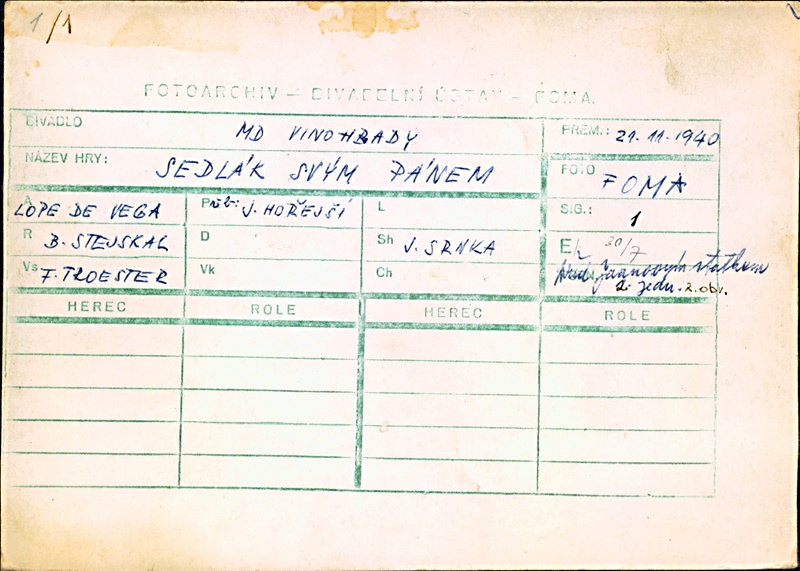 1/1
FOTOARCHIV – DIVADELNÍ ÚSTAV – FOMA.
DIVADLO MD VINOHRADY PREM.: 21.11.1940
NÁZEV HRY: SEDLÁK SVÝM PÁNEM FOTO FOMA
A LOPE DE VEGA Překl: J. HOŘEJŠÍ L SIG.: 1
R B. STEJSKAL D Sh J. SRNKA E/ 30/7
Vs F. TROESTER Vk Ch před Juanovým statkem
2. jedn. 2. obr.
HEREC ROLE HEREC ROLE